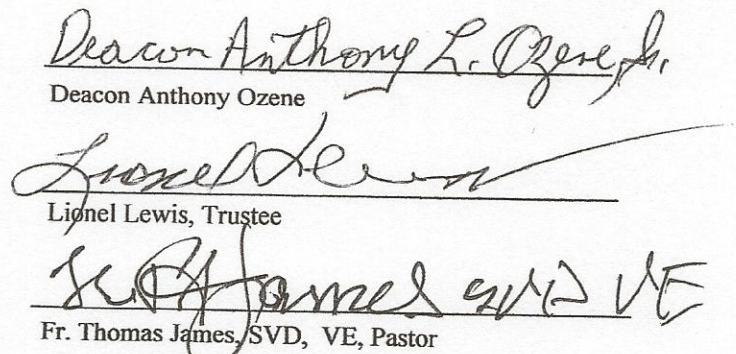 Deacon Anthony L. Ozene, Jr.
Deacon Anthony Ozene
Lionel Lewis
Lionel Lewis, Trustee
James SVD VE
Fr. Thomas James, SVD, VE, Pastor